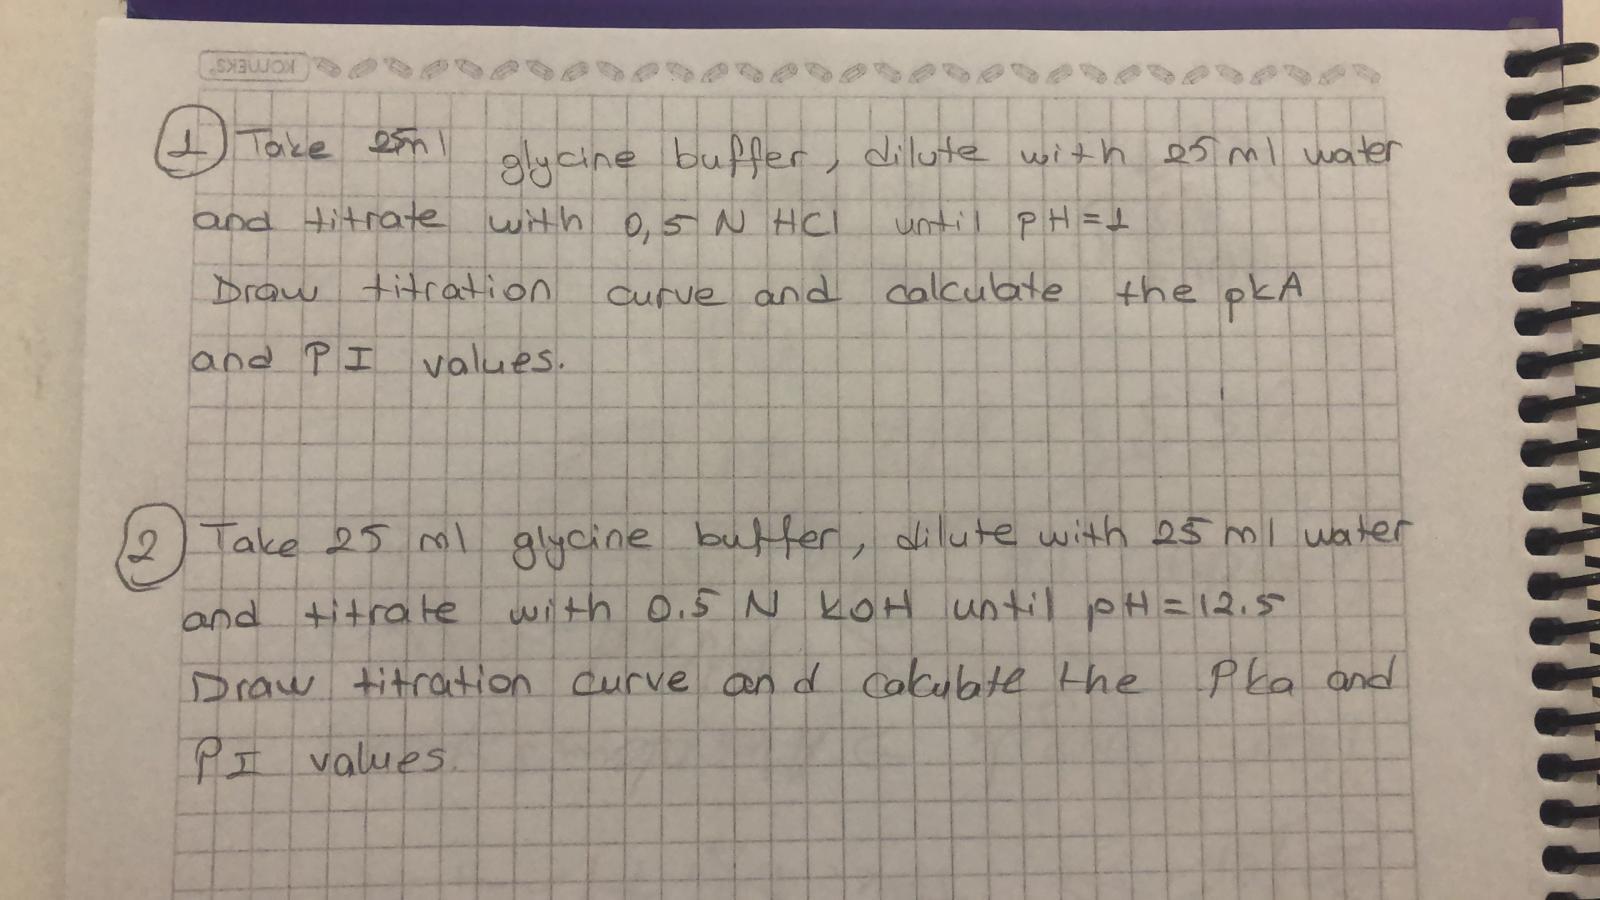 KOLWEKS.
1 Take 25ml glycine buffer, dilute with 25 ml water
and titrate with 0,5 N HCl until pH=1
Draw titration curve and calculate the pkA
and PI values.
2 Take 25 ml glycine buffer, dilute with 25 ml water
and titrate with 0.5 N KOH until pH=12.5
Draw titration curve and calculate the Pka and
PI values.